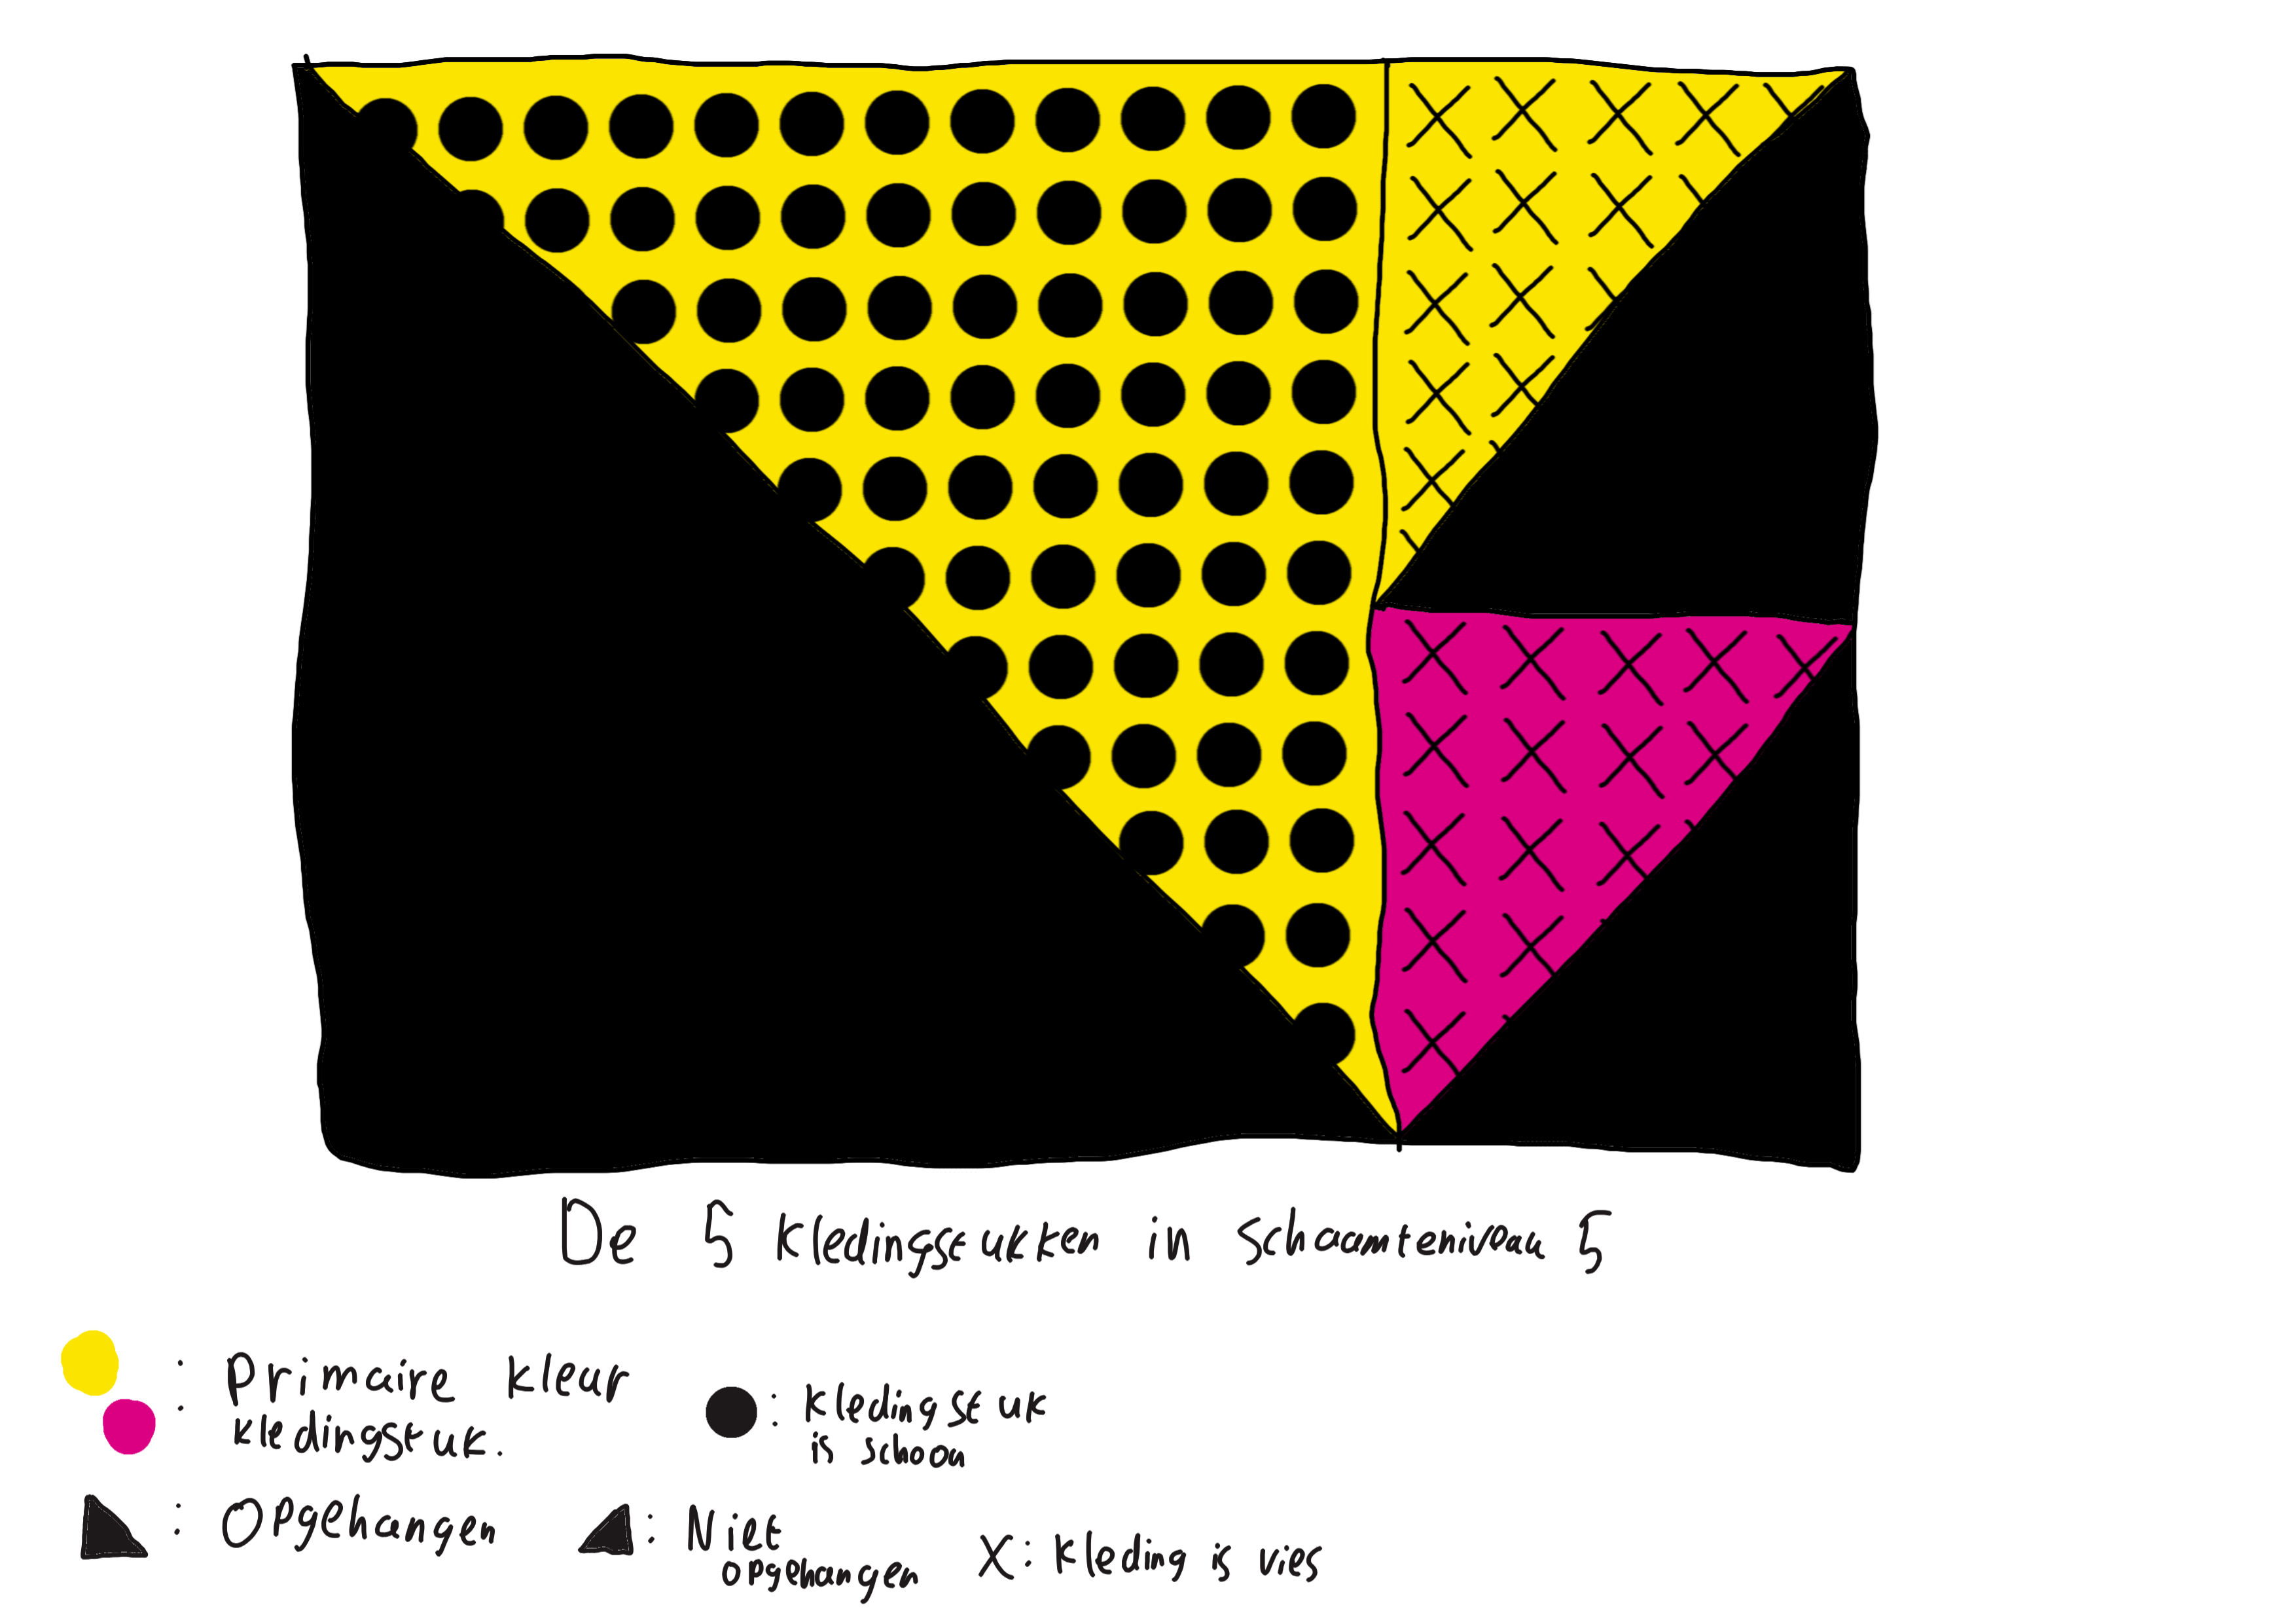 De 5 kledingstukken in schaamteniveau 5
: Primaire kleur
: kledingstuk.
: kledingstuk
is schoon
: Opgehangen
: Niet
opgehangen
X: kleding is vies